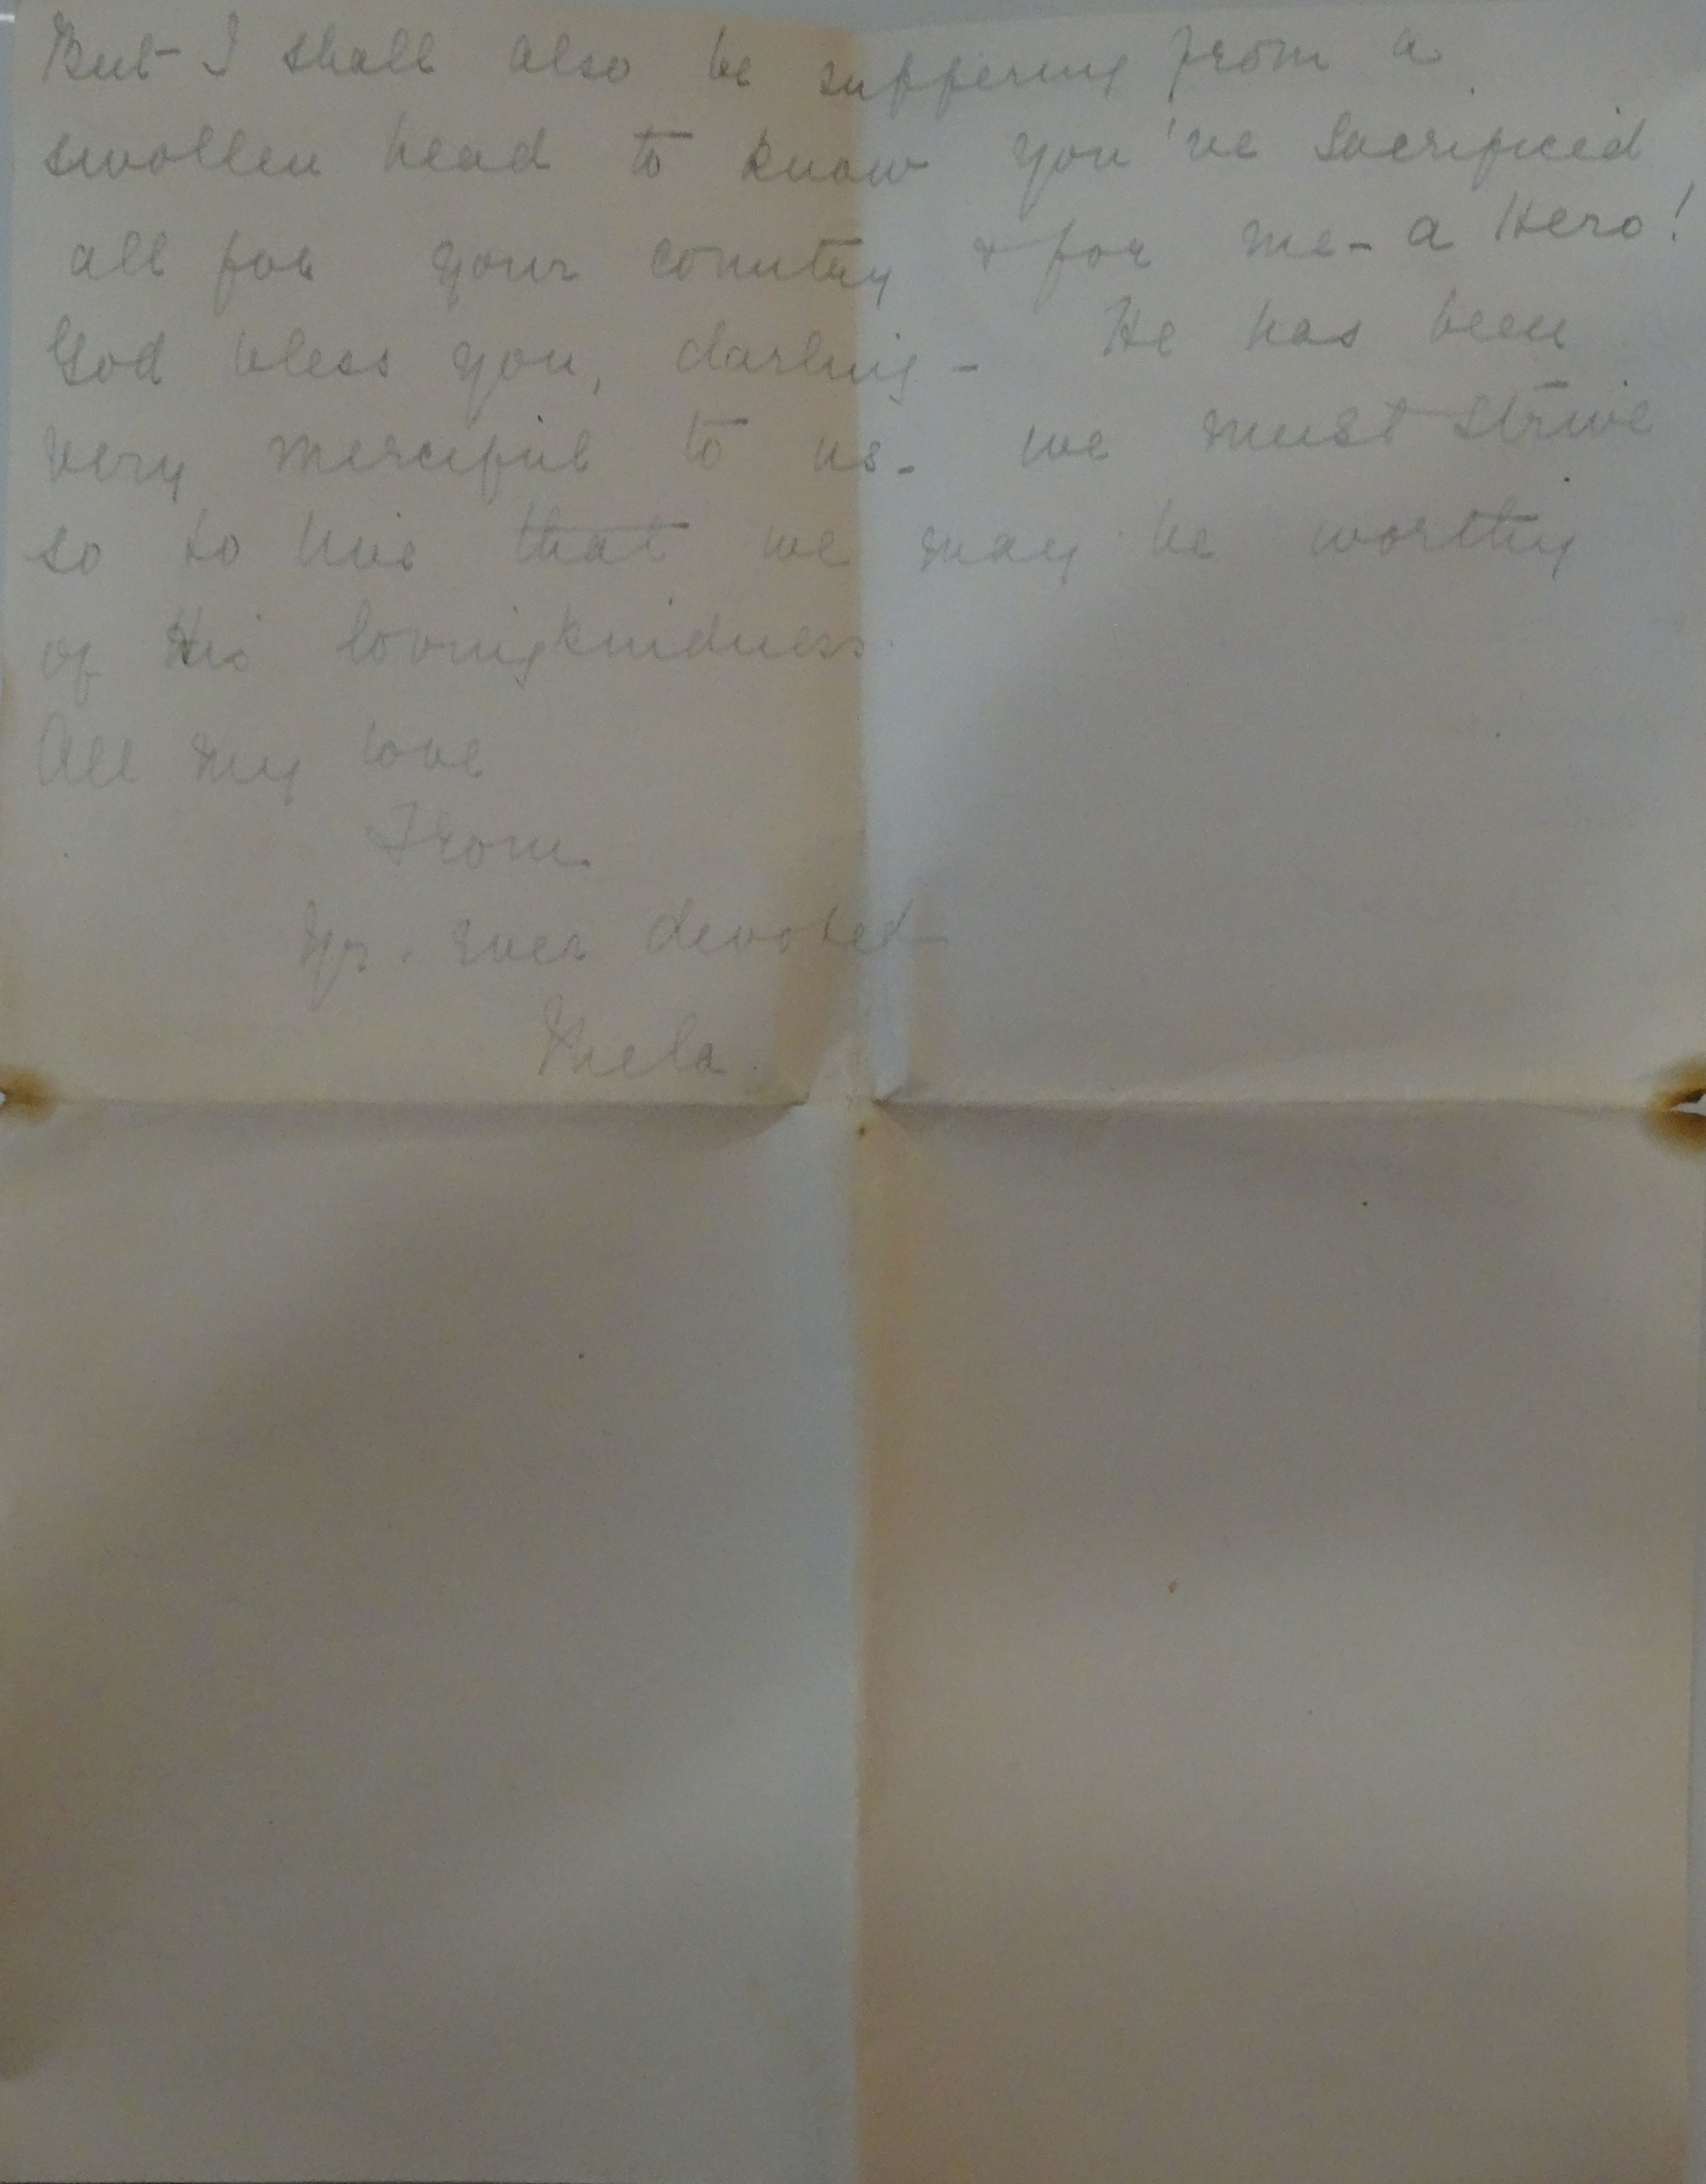 But I shall also be suffering from a
swollen head to know you've sacrificed
all for your country & for me - a Hero!
God bless you, darling - He has been
very merciful to us - we must strive
so to live that we may be worthy
of His lovingkindness.
All my love
From
Yr. ever devoted